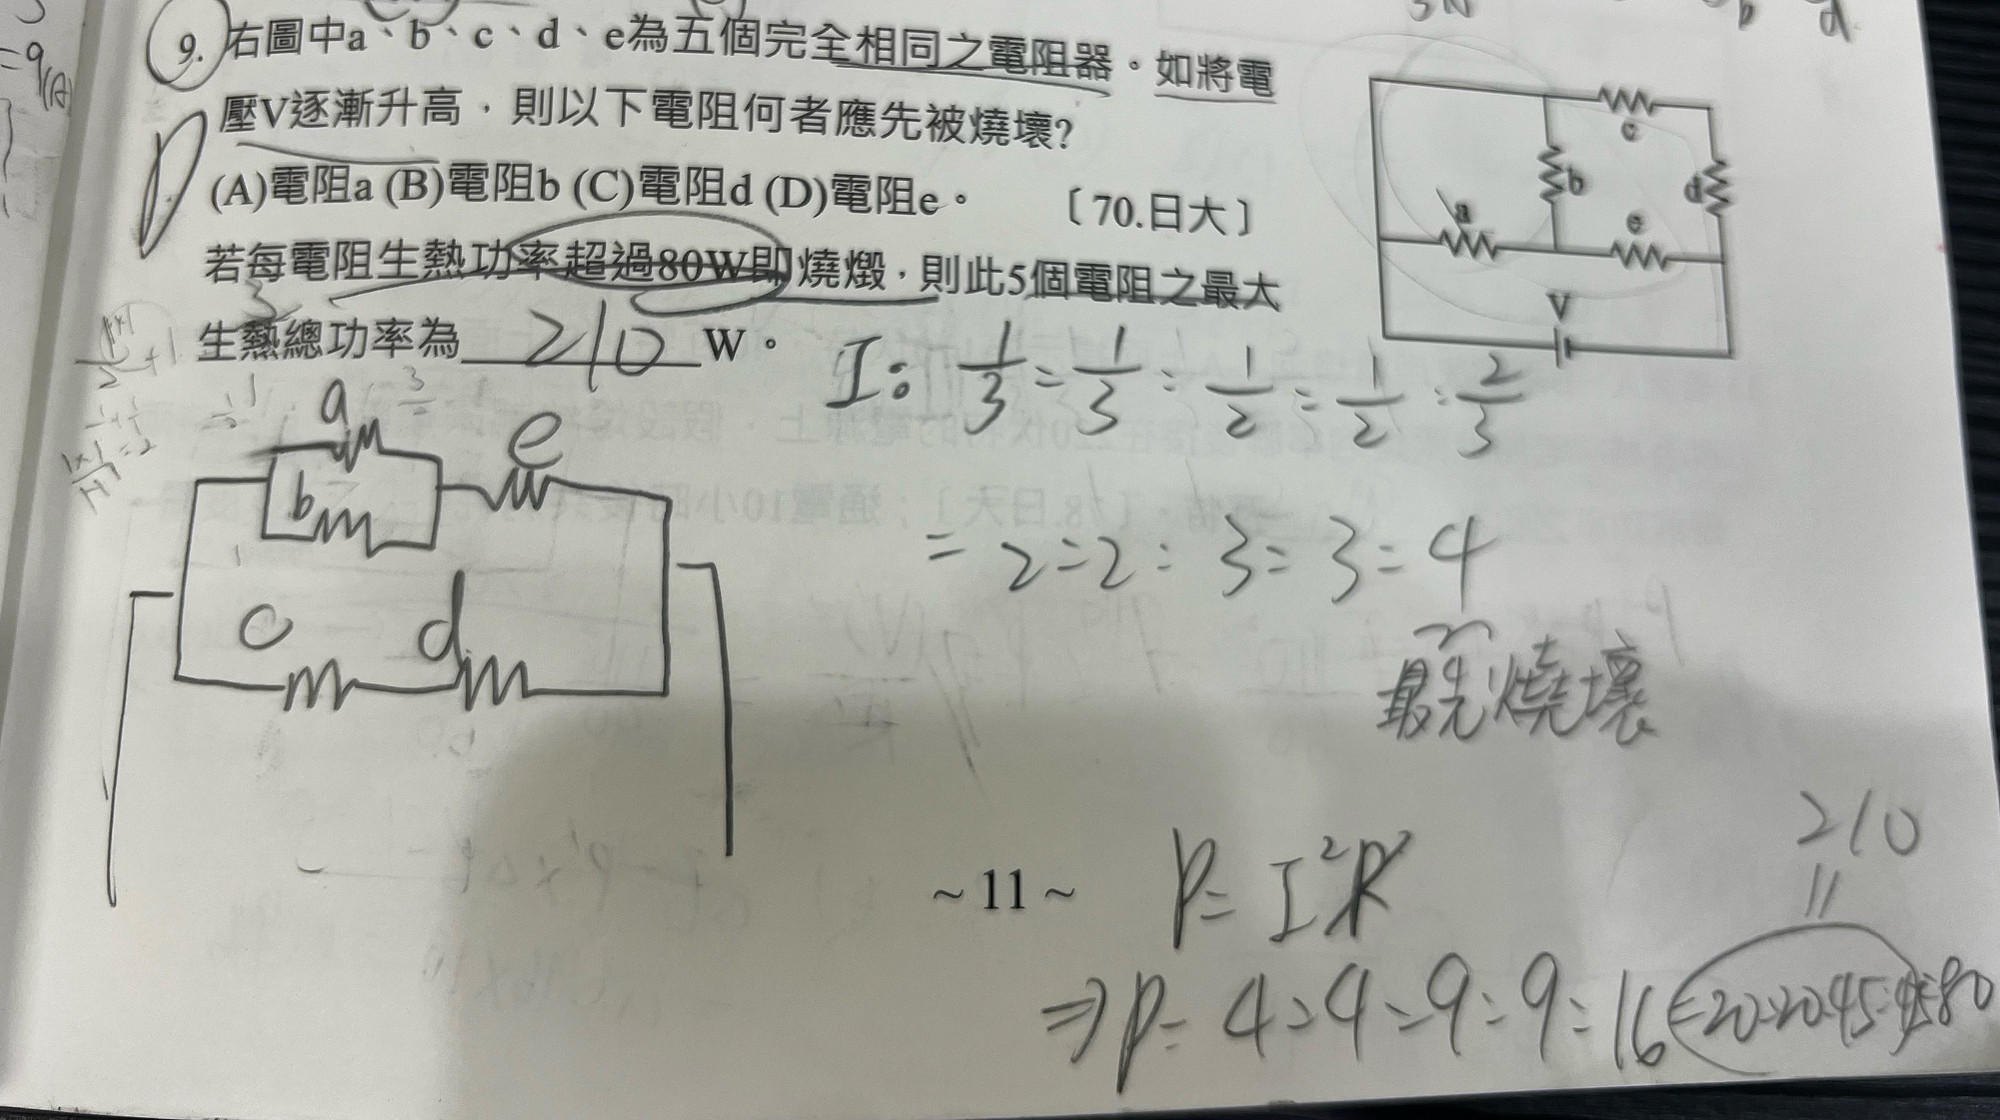 9. 右圖中a、b、c、d、e為五個完全相同之電阻器。如將電
壓V逐漸升高，則以下電阻何者應先被燒壞?
(A)電阻a (B)電阻b (C)電阻d (D)電阻e。 〔70.日大〕
若每電阻生熱功率超過80W即燒燬，則此5個電阻之最大
生熱總功率為 210 W。
D
c
b
d
a
e
V
I: 1/3 : 1/3 : 1/2 : 1/2 : 2/3
= 2 : 2 : 3 : 3 : 4
最先燒壞
a
e
b
c
d
~ 11 ~
P = I²R
⇒ P = 4 : 4 : 9 : 9 : 16 = 20:20:45:45:80
210